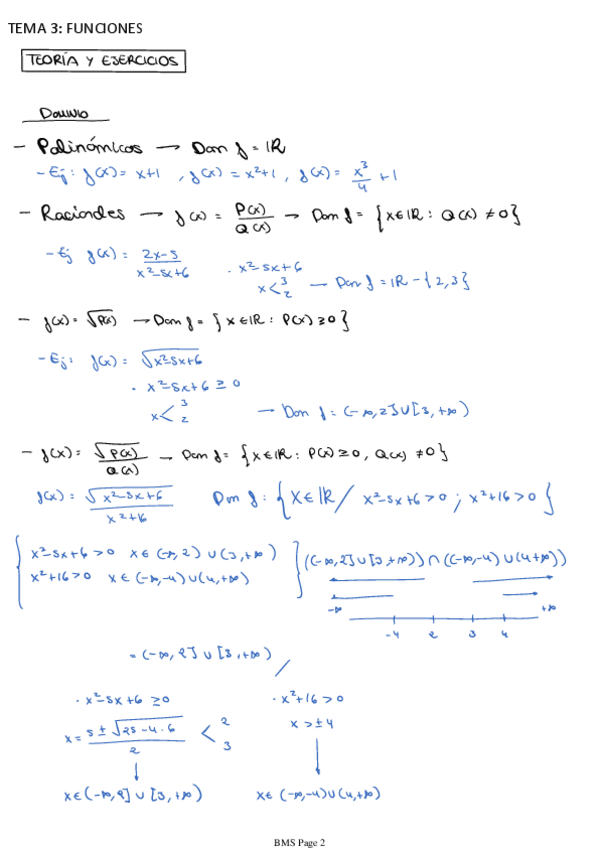 TEMA 3: FUNCIONES
TEORÍA Y EJERCICIOS
Dominio
- Polinómicos → Dom f = ℝ
- Ej: f(x) = x+1 , f(x) = x²+1 , f(x) = x³/4 + 1
- Racionales → f(x) = P(x)/Q(x) → Dom f = {x∈ℝ : Q(x) ≠ 0}
- Ej f(x) = (2x-5)/(x²-5x+6) · x²-5x+6
x < 3 2 → Dom f = ℝ - {2,3}
- f(x) = √P(x) → Dom f = {x∈ℝ : P(x) ≥ 0}
- Ej: f(x) = √(x²-5x+6)
· x²-5x+6 ≥ 0
x < 3 2 → Dom f = (-∞, 2] ∪ [3, +∞)
- f(x) = √P(x)/Q(x) → Dom f = {x∈ℝ : P(x) ≥ 0, Q(x) ≠ 0}
f(x) = √(x²-5x+6)/(x²+16) Dom f : {x∈ℝ / x²-5x+6 > 0 ; x²+16 > 0}
x²-5x+6 > 0 x∈(-∞, 2) ∪ (3, +∞) ((-∞, 2] ∪ [3, +∞)) ∩ ((-∞, -4) ∪ (4, +∞))
x²+16 > 0 x∈(-∞, -4) ∪ (4, +∞)
-∞ +∞
-4 2 3 4
= (-∞, 2] ∪ [3, +∞)
· x²-5x+6 ≥ 0 · x²+16 > 0
x = (5 ± √(25-4·6))/2 < 2 3 x > ±4
x∈(-∞, 2] ∪ [3, +∞) x∈(-∞, -4) ∪ (4, +∞)
BMS Page 2